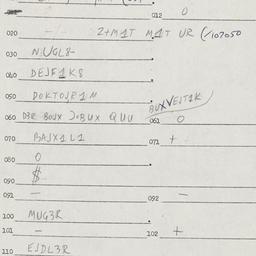 012 0
020 2+M1T M1T UR (/107050
030 NIUGL8-
040 DEJF1K8
050 DOKTOJR1M
BUXVEJT1K
060 D8R BOUX J0BUX QUU 061 0
070 BAJX1L1 071 +
080 0
090 $
091 - 092 -
100 MUG3R
101 - 102 +
110 EJDL3R